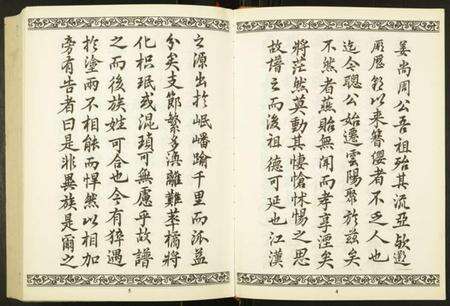 姜尚周公吾祖殆其流亞歟
厥歷朝以來簪纓者不乏人也
迄今聰公始遷雲陽聚於茲矣
不然者燕貽無聞而孝享湮矣
將茫然莫動其悽愴怵惕之思
故譜立而後祖德可延也江漢
4
之源出於岷嶓踰千里而派益
分矣支節繁多渙離難萃橘將
化枳珉或混瑣可無慮乎故譜
之而後族姓可合也今有猝遇
於塗兩不相能而悍然以相加
旁有告者曰是非異族是爾之
5